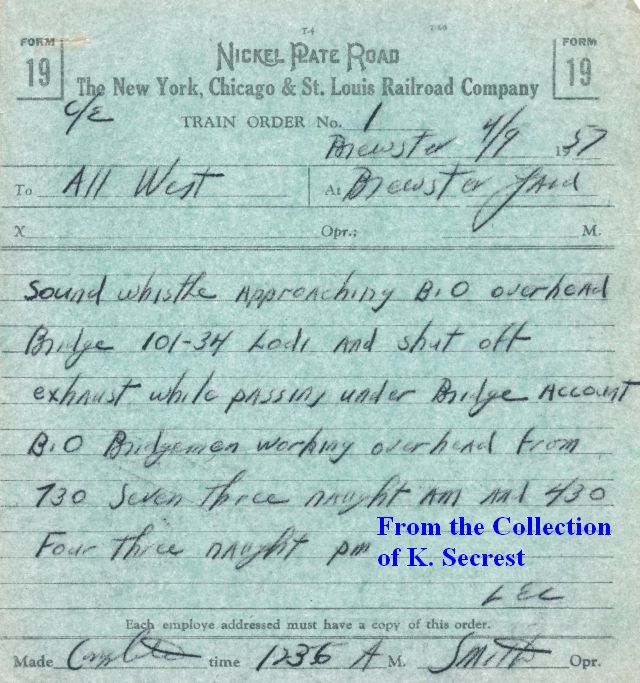 T-4 7-56
FORM 19
NICKEL PLATE ROAD
FORM 19
The New York, Chicago & St. Louis Railroad Company
C/E
TRAIN ORDER No. 1
Brewster 4/9 1957
To All West At Brewster Yard
X Opr.; M.
Sound whistle Approaching B.O overhead
Bridge 101-34 Lodi And shut off
exhaust while passing under Bridge Account
B.O Bridgemen working overhead from
730 Seven Three naught Am And 430
Four Three naught pm
From the Collection
of K. Secrest
LEC
Each employe addressed must have a copy of this order.
Made Complete time 1236 A M. Smith Opr.